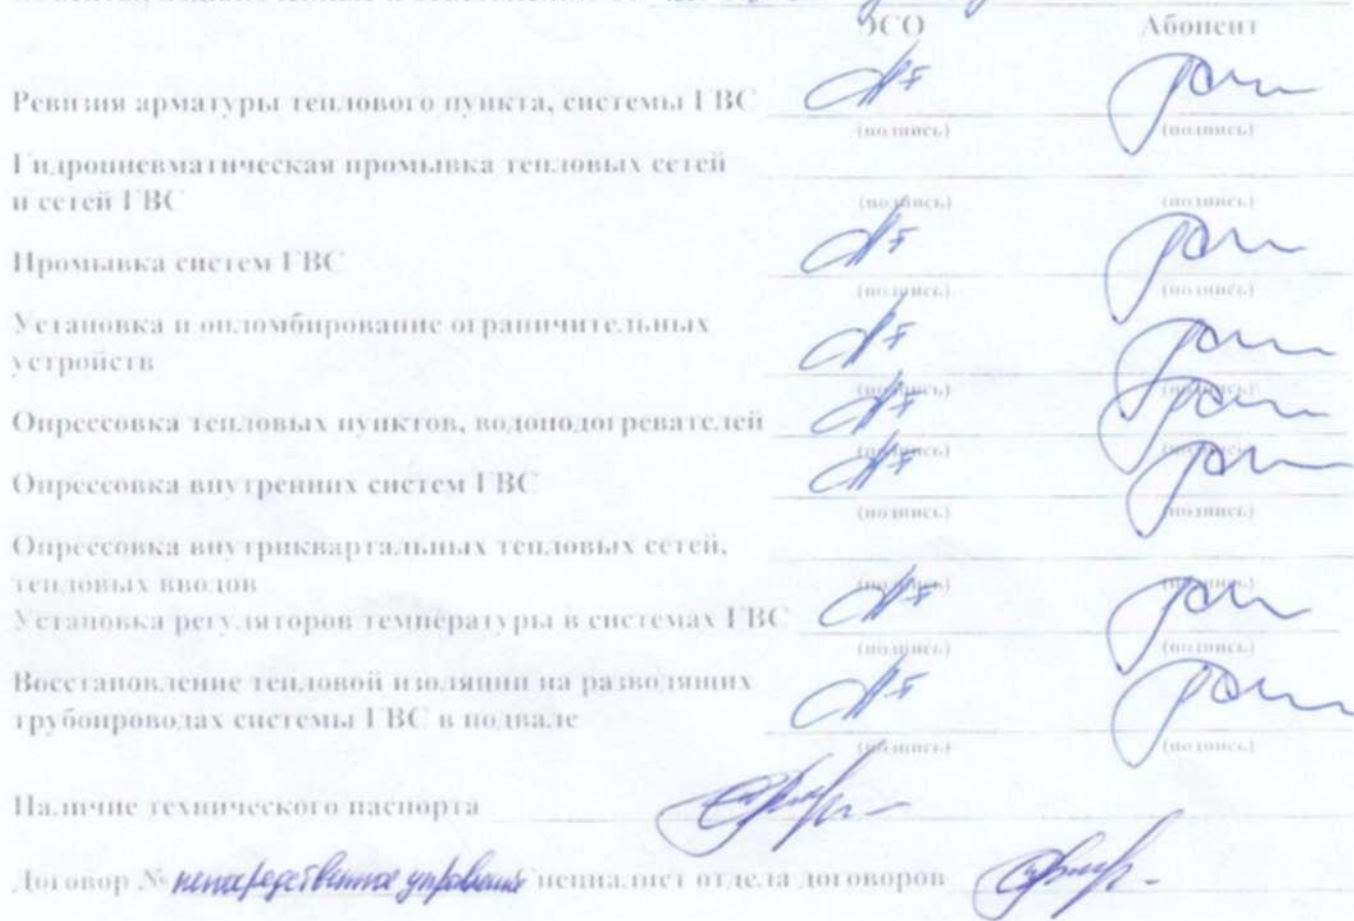 ЭСО Абонент
Ревизия арматуры теплового пункта, системы ГВС
(подпись) (подпись)
Гидропневматическая промывка тепловых сетей
и сетей ГВС
(подпись) (подпись)
Промывка систем ГВС
(подпись) (подпись)
Установка и опломбирование ограничительных
устройств
(подпись) (подпись)
Опрессовка тепловых пунктов, водоподогревателей
(подпись) (подпись)
Опрессовка внутренних систем ГВС
(подпись) (подпись)
Опрессовка внутриквартальных тепловых сетей,
тепловых вводов
(подпись) (подпись)
Установка регуляторов температуры в системах ГВС
(подпись) (подпись)
Восстановление тепловой изоляции на разводящих
трубопроводах системы ГВС в подвале
(подпись) (подпись)
Наличие технического паспорта
Договор № непосредственное управление Специалист отдела договоров